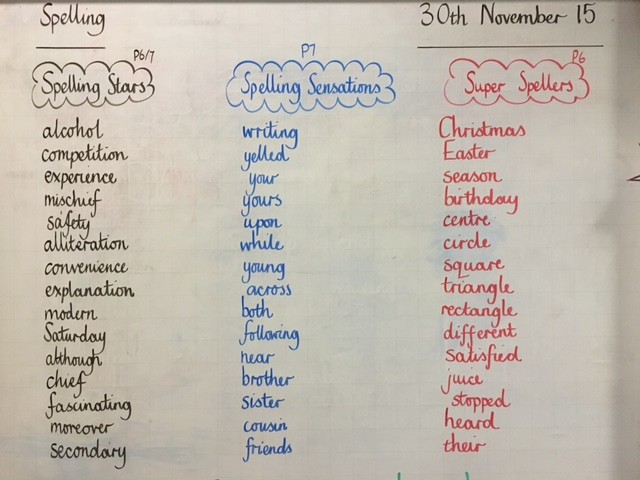 Spelling
30th November 15
P6/7
Spelling Stars
alcohol
competition
experience
mischief
safety
alliteration
convenience
explanation
modern
Saturday
although
chief
fascinating
moreover
secondary
P7
Spelling Sensations
writing
yelled
your
yours
upon
while
young
across
both
following
near
brother
sister
cousin
friends
P6
Super Spellers
Christmas
Easter
season
birthday
centre
circle
square
triangle
rectangle
different
satisfied
juice
stopped
heard
their